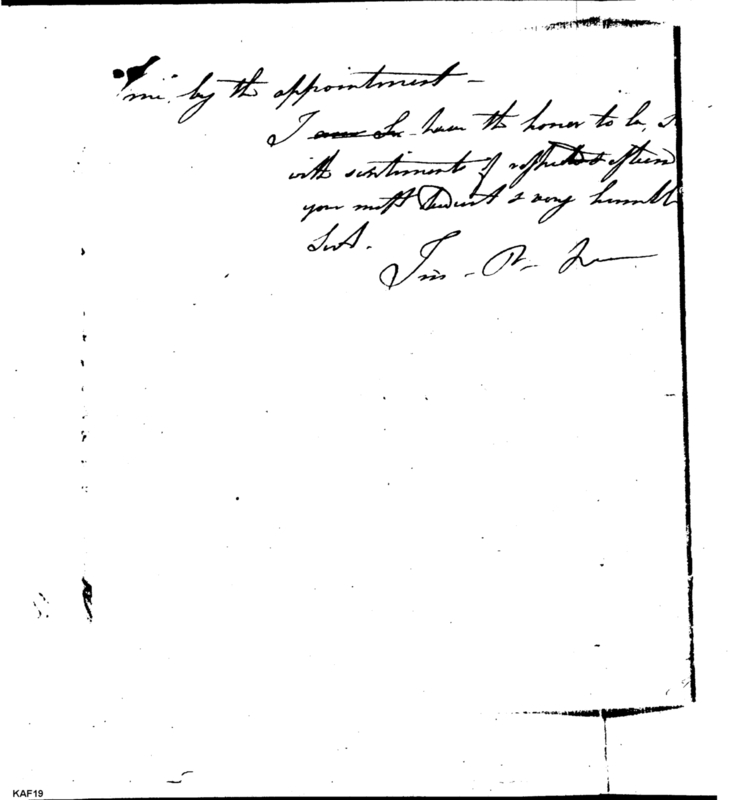 me by the appointment –
I am Sir have the honor to be, S
with sentiments of respect & esteem
your most obedient & very humble
Servt.
Jas. R.
KAF19